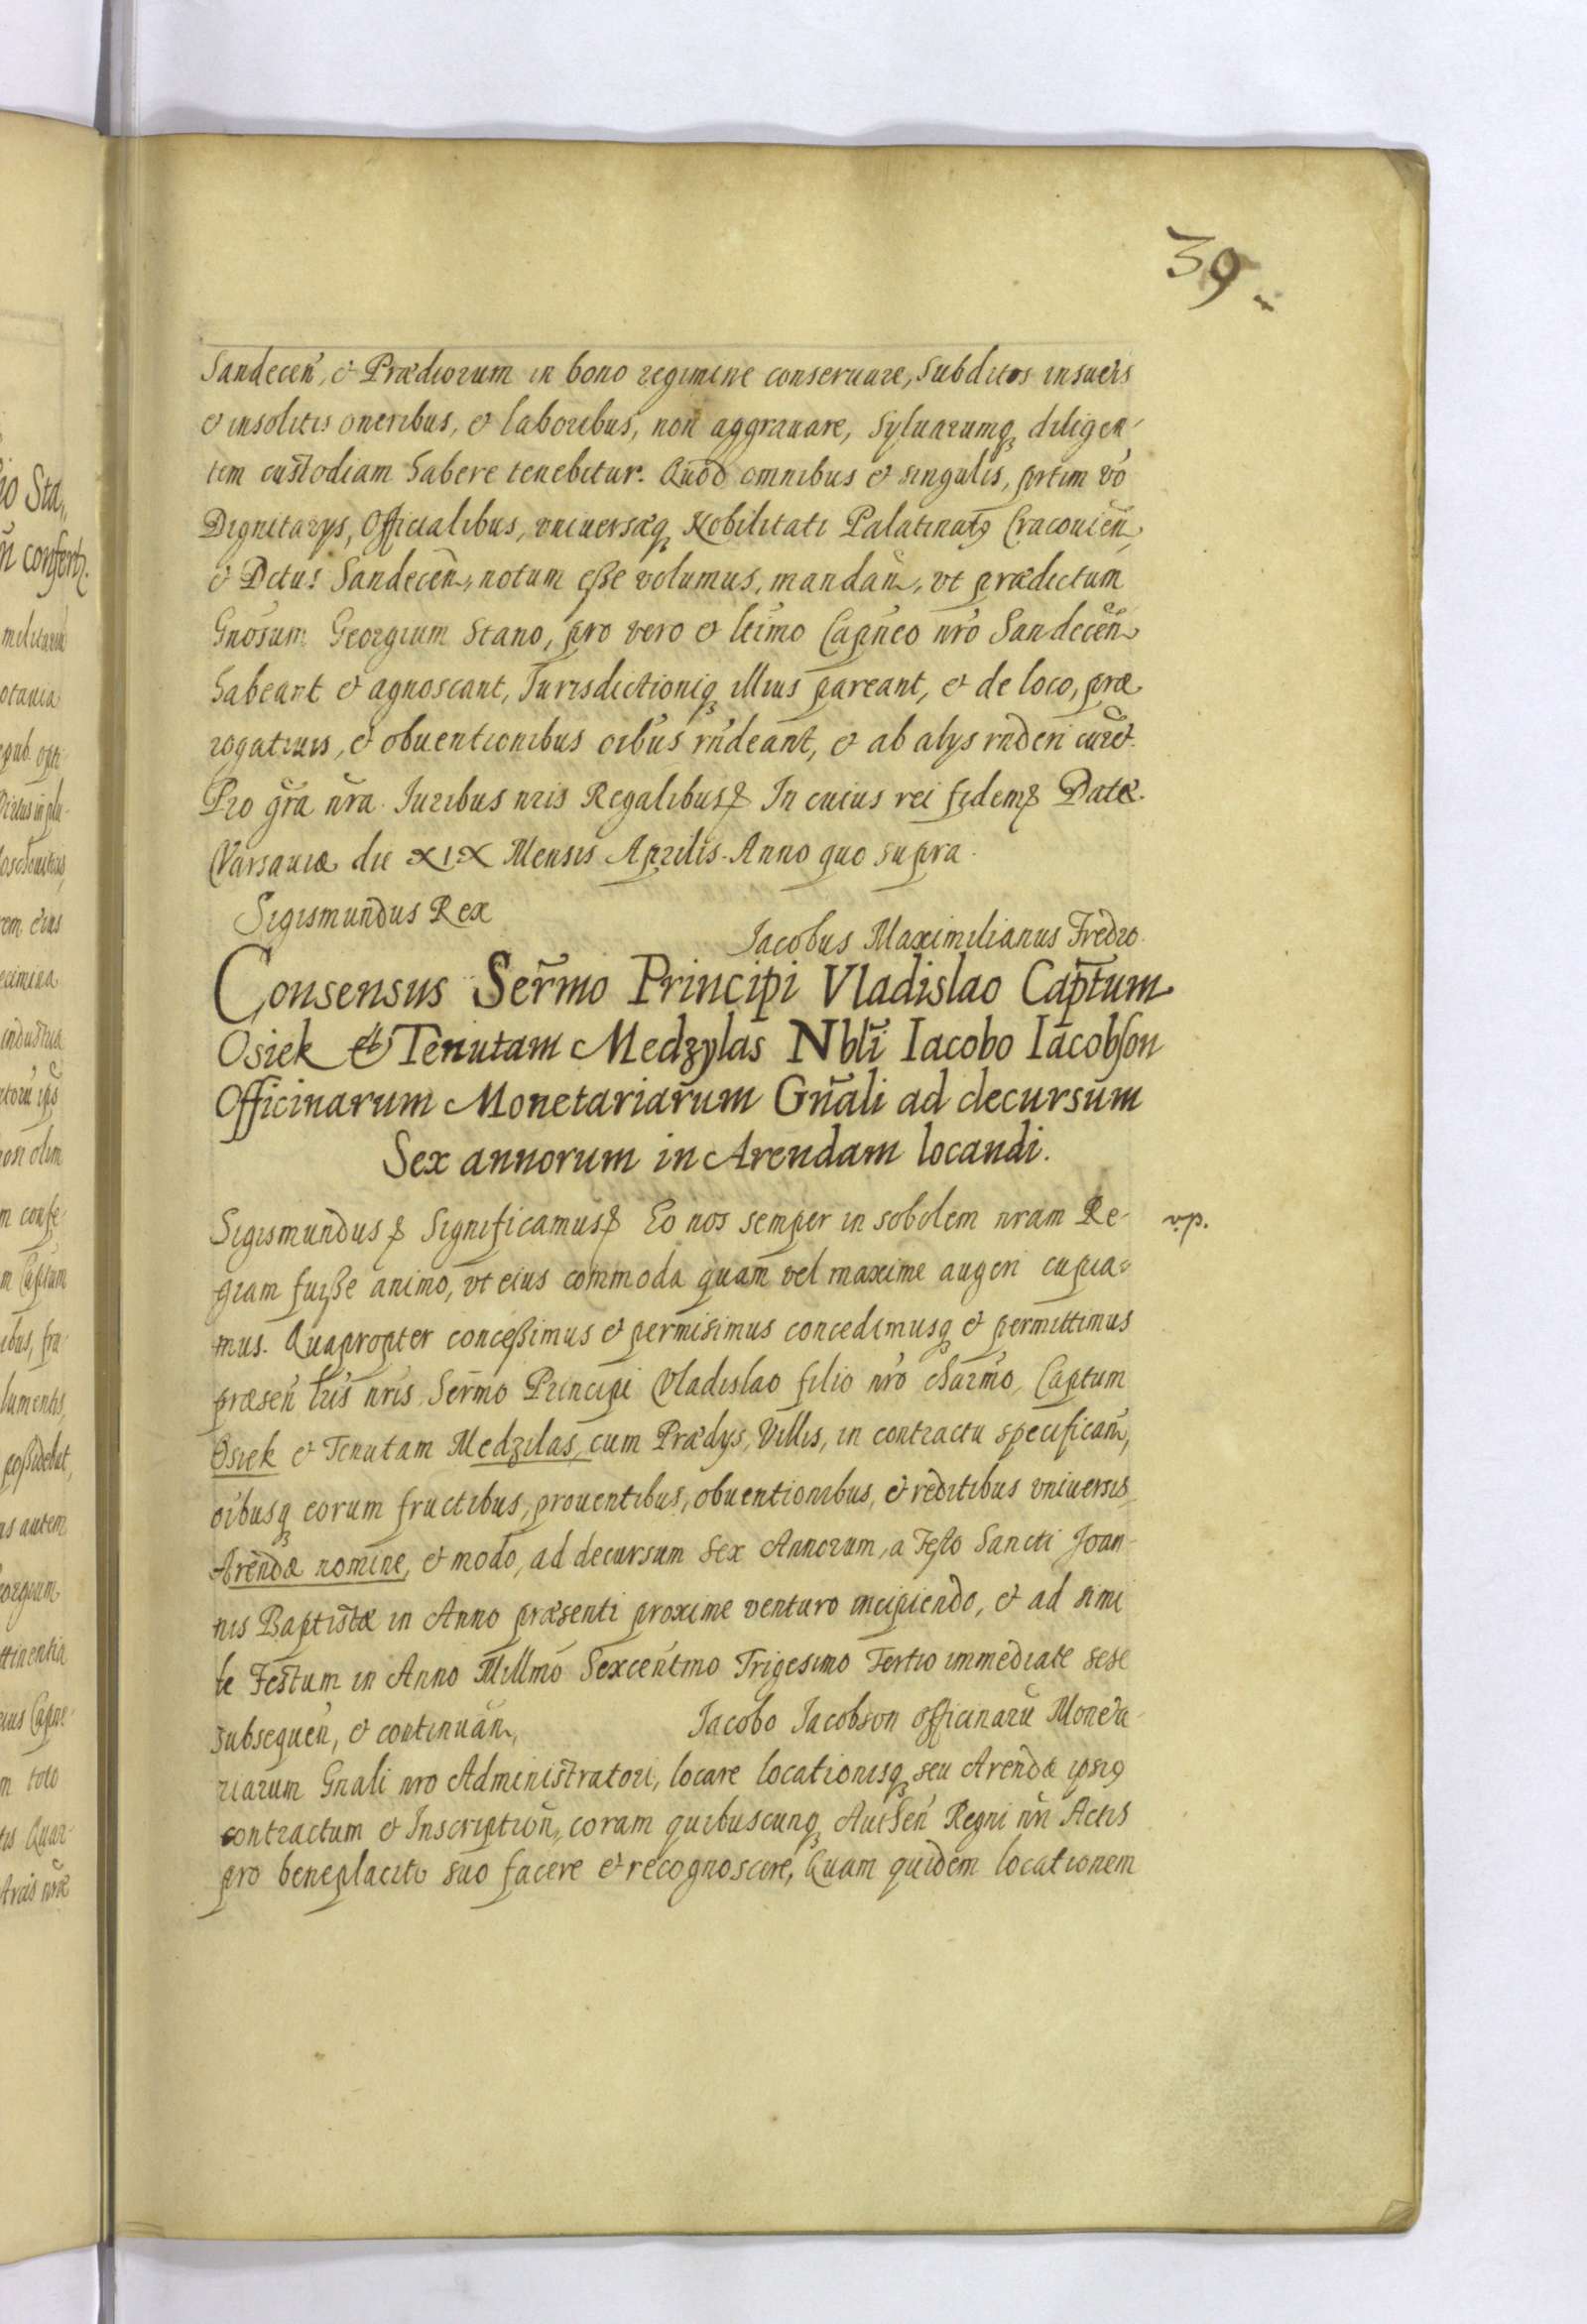 39.
Sandecen̄, & Prædiorum in bono regimine conseruare, subditos insuetis
& insolitis oneribus, & laboribus, non aggrauare, syluarumq₃ diligen-
tem custodiam habere tenebitur. Quod omnibus & singulis, prtim vo
Dignitarys, Officialibus, vniuersæq₃ Nobilitati Palatinatꝰ Cracouien̄,
& Dctus Sandecen̄, notum eße volumus, mandan̄, vt prædictum
Gnosum Georgium Stano, pro vero & leimo Capneo nro Sandecen̄
habeant & agnoscant, Jurisdictioniq₃ illius pareant, & de loco, præ
rogatiuis, & obuentionibus oibus rndeant, & ab alys rnderi curet.
Pro gra nra. Iuribus nris Regalibus⁊ In cuius rei fidem⁊ Datæ.
Varsauiæ die XIX Mensis Aprilis. Anno quo supra.
Sigismundus Rex
Jacobus Maximilianus Fredro.
Consensus Ser̄mo Principi Vladislao Cap̄tum
Osiek et Tenutam Medzylas Nbli Iacobo Iacobson
Officinarum Monetariarum Gn̄ali ad decursum
Sex annorum in Arendam locandi.
Sigismundus⁊ Significamus⁊ Eo nos semper in sobolem nram Re-
v.p.
giam fuiße animo, vt eius commoda quam vel maxime augeri cupia-
mus. Quapropter conceßimus & permisimus concedimusq₃ & permittimus
præsen̄ lris nris Ser̄mo Principi Vladislao filio nro charmo, Captum
Osiek & Tenutam Medzilas, cum Prædys, Villis, in contractu specifican̄,
oibusq₃ eorum fructibus, prouentibus, obuentionibus, & reditibus vniuersis
Arendæ nomine, & modo, ad decursum Sex Annorum, a Festo Sancti Joan-
nis Baptistæ in Anno præsenti proxime venturo incipiendo, & ad simi
le Festum in Anno Millmo Sexcentmo Trigesimo Tertio immediate sese
subsequen̄, & continuan̄, Jacobo Jacobson officinarū Moneta-
riarum Gnali nro Administratori, locare locationisq₃ seu Arendæ ipsiꝰ
contractum & Inscription̄, coram quibuscunq₃ Authen̄ Regni nri Actis
pro beneplacito suo facere & recognoscere, Quam quidem locationem